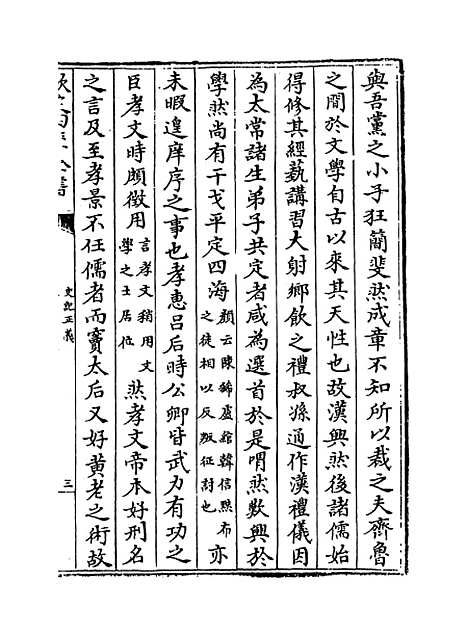 與吾黨之小子狂簡斐然成章不知所以裁之夫齊魯
之間於文學自古以來其天性也故漢興然後諸儒始
得修其經蓺講習大射鄉飲之禮叔孫通作漢禮儀因
為太常諸生弟子共定者咸為選首於是喟然歎興於
學然尚有干戈平定四海顏云陳豨盧綰韓信黥布之徒相以反叛征討也亦
未暇遑庠序之事也孝惠吕后時公卿皆武力有功之
臣孝文時頗徵用言孝文稍用文學之士居位然孝文帝本好刑名
之言及至孝景不任儒者而竇太后又好黄老之術故
史記正義
三